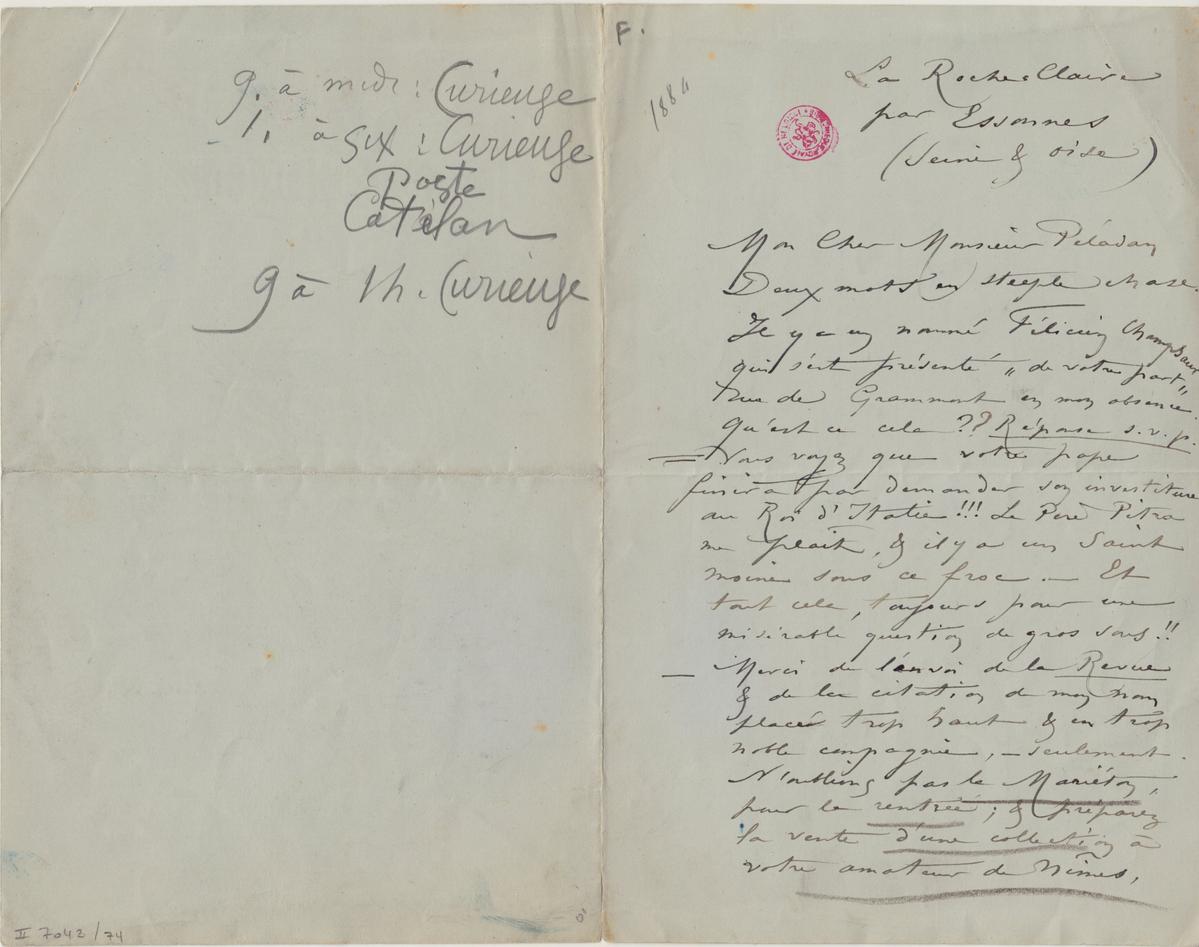 9. à midi : Curienge
1. à six : Curienge
Poste
Catélan
9 à 1h. Curienge
II 7042/74
F.
1884
La Roche Claire
par Essonnes
(Seine & Oise)
Mon Cher Monsieur Péladan
Deux mots en steeple chase.
Il y a un nommé Félicien Champsaur
qui s'est présenté „de votre part„
rue de Grammont en mon absence.
Qu'est ce cela ?? Réponse s.v.p.
= Vous voyez que votre pape
finira par demander son investiture
au Roi d'Italie !!! Le Père Pitra
me plait, & il y a un Saint
moine sous ce froc. — Et
tout cela, toujours pour une
misérable question de gros sous !!
— Merci de l'envoi de la Revue
& de la citation de mon nom
placée trop haut & en trop
noble compagnie, — seulement.
N'oublions pas le Mariéton,
pour la rentrée ; & préparez
la vente d'une collection à
votre amateur de Nîmes,